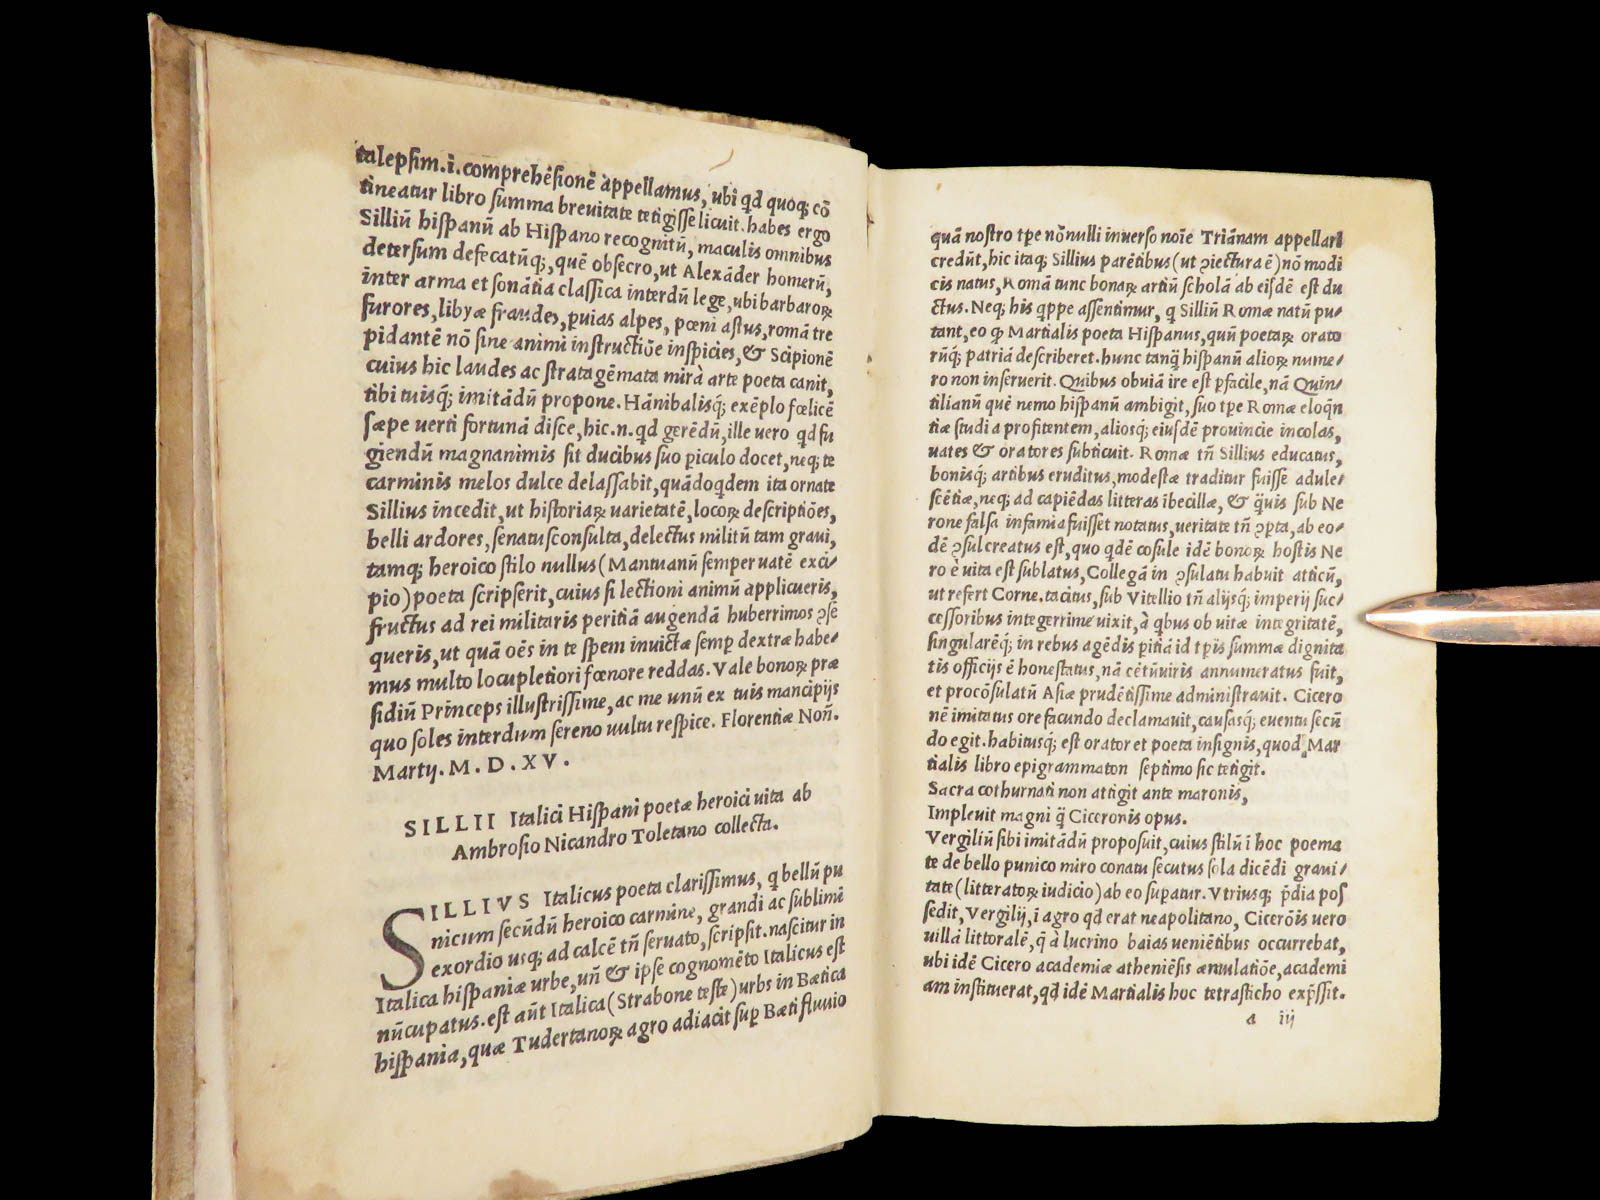 talepsim.i.comprehēsionē appellamus, ubi qd quoq; cō
tineatur libro summa breuitate tetigisse licuit. habes ergo
Silliū hispanū ab Hispano recognitū, maculis omnibus
detersum defecatūq;, quē obsecro, ut Alexāder homerū,
inter arma et sonātia classica interdū lege, ubi barbaroꝝ
furores, libyæ fraudes, ꝑuias alpes, pœni astus, romā tre
pidantē nō sine animi instructiōe inspicies, & Scipionē
cuius hic laudes ac stratagēmata mirà arte poeta canit,
tibi tuisq; imitādū propone. Hānibalisq; exēplo fœlicē
sæpe uerti fortunā disce, hic.n.qd gerēdū, ille uero qd fu
giendū magnanimis sit ducibus suo ꝑiculo docet, neq; te
carminis melos dulce delassabit, quādoqdem ita ornate
Sillius incedit, ut historiaꝝ uarietatē, locoꝝ descriptiōes,
belli ardores, senatusconsulta, delectus militū tam graui,
tamq; heroico stilo nullus (Mantuanū semper uatē exci-
pio) poeta scripserit, cuius si lectioni animū applicueris,
fructus ad rei militaris peritiā augendā huberrimos ꝯse
queris, ut quā oēs in te spem inuictæ semꝑ dextræ habe-
mus multo locupletiori fœnore reddas. Vale bonoꝝ præ
sidiū Princeps illustrissime, ac me unū ex tuis mancipijs
quo soles interdum sereno uultu respice. Florentiæ Noñ.
Martij. M. D. XV.
SILLII Italici Hispani poetæ heroici uita ab
Ambrosio Nicandro Toletano collecta.
SILLIVS Italicus poeta clarissimus, q bellū pu
nicum secūdū heroico carmine, grandi ac sublimi
exordio usq; ad calcē tñ seruato, scripsit. nascitur in
Italica hispaniæ urbe, uñ & ipse cognomēto Italicus est
nūcupatus. est aūt Italica (Strabone teste) urbs in Bætica
hispania, quæ Tudertanoꝝ agro adiacit suꝑ Bæti fluuio
quā nostro tꝑe nōnulli inuerso noīe Triānam appellari
credūt, hic itaq; Sillius parētibus (ut ꝯiectura ē) nō modi
cis natus, Romā tunc bonaꝝ artiū scholā ab eisdē est du
ctus. Neq; his qppe assentimur, q Silliū Romæ natū pu-
tant, eo ꝙ Martialis poeta Hispanus, quū poetaꝝ orato
rūq; patriā describeret. hunc tanq̄ hispanū alioꝝ nume-
ro non inseruerit. Quibus obuiā ire est ꝑfacile, nā Quin-
tilianū quē nemo hispanū ambigit, suo tꝑe Romæ eloqn
tiæ studia profitentem, aliosq; eiusdē prouincie incolas,
uates & oratores subticuit. Romæ tñ Sillius educatus,
bonisq; artibus eruditus, modestæ traditur fuisse adule-
scētiæ, neq; ad capiēdas litteras ibecillæ, & q̄uis sub Ne
rone falsa infamia fuisset notatus, ueritate tñ ꝯꝑta, ab eo-
dē ꝯsul creatus est, quo qdē cōsule idē bonoꝝ hostis Ne
ro è uita est sublatus, Collegā in ꝯsulatu habuit atticū,
ut refert Corne. tacitus, sub Vitellio tñ alijsq; imperij suc-
cessoribus integerrime uixit, à qbus ob uitæ integritatē,
singularēq; in rebus agēdis ꝑitiā id tꝑis summæ dignita
tis officijs ē honestatus, nā cētūuiris annumeratus fuit,
et procōsulatū Asiæ prudētissime administrauit. Cicero
nē imitatus ore facundo declamauit, causasq; euentu secū
do egit. habitusq; est orator et poeta insignis, quod Mar
tialis libro epigrammaton septimo sic tetigit.
Sacra cothurnati non attigit ante maronis,
Impleuit magni q̄ Ciceronis opus.
Vergiliū sibi imitādū proposuit, cuius stilū i hoc poema
te de bello punico miro conatu secutus sola dicēdi graui-
tate (litteratoꝝ iudicio) ab eo suꝑatur. Vtriusq; p̄dia pos
sedit, Vergilij, i agro qd erat neapolitano, Cicerōis uero
uillā littoralē, q̄ à lucrino baias ueniētibus occurrebat,
ubi idē Cicero academiæ atheniēsis æmulatiōe, academi
am instituerat, qd idē Martialis hoc tetrasticho exp̄ssit.
a iij